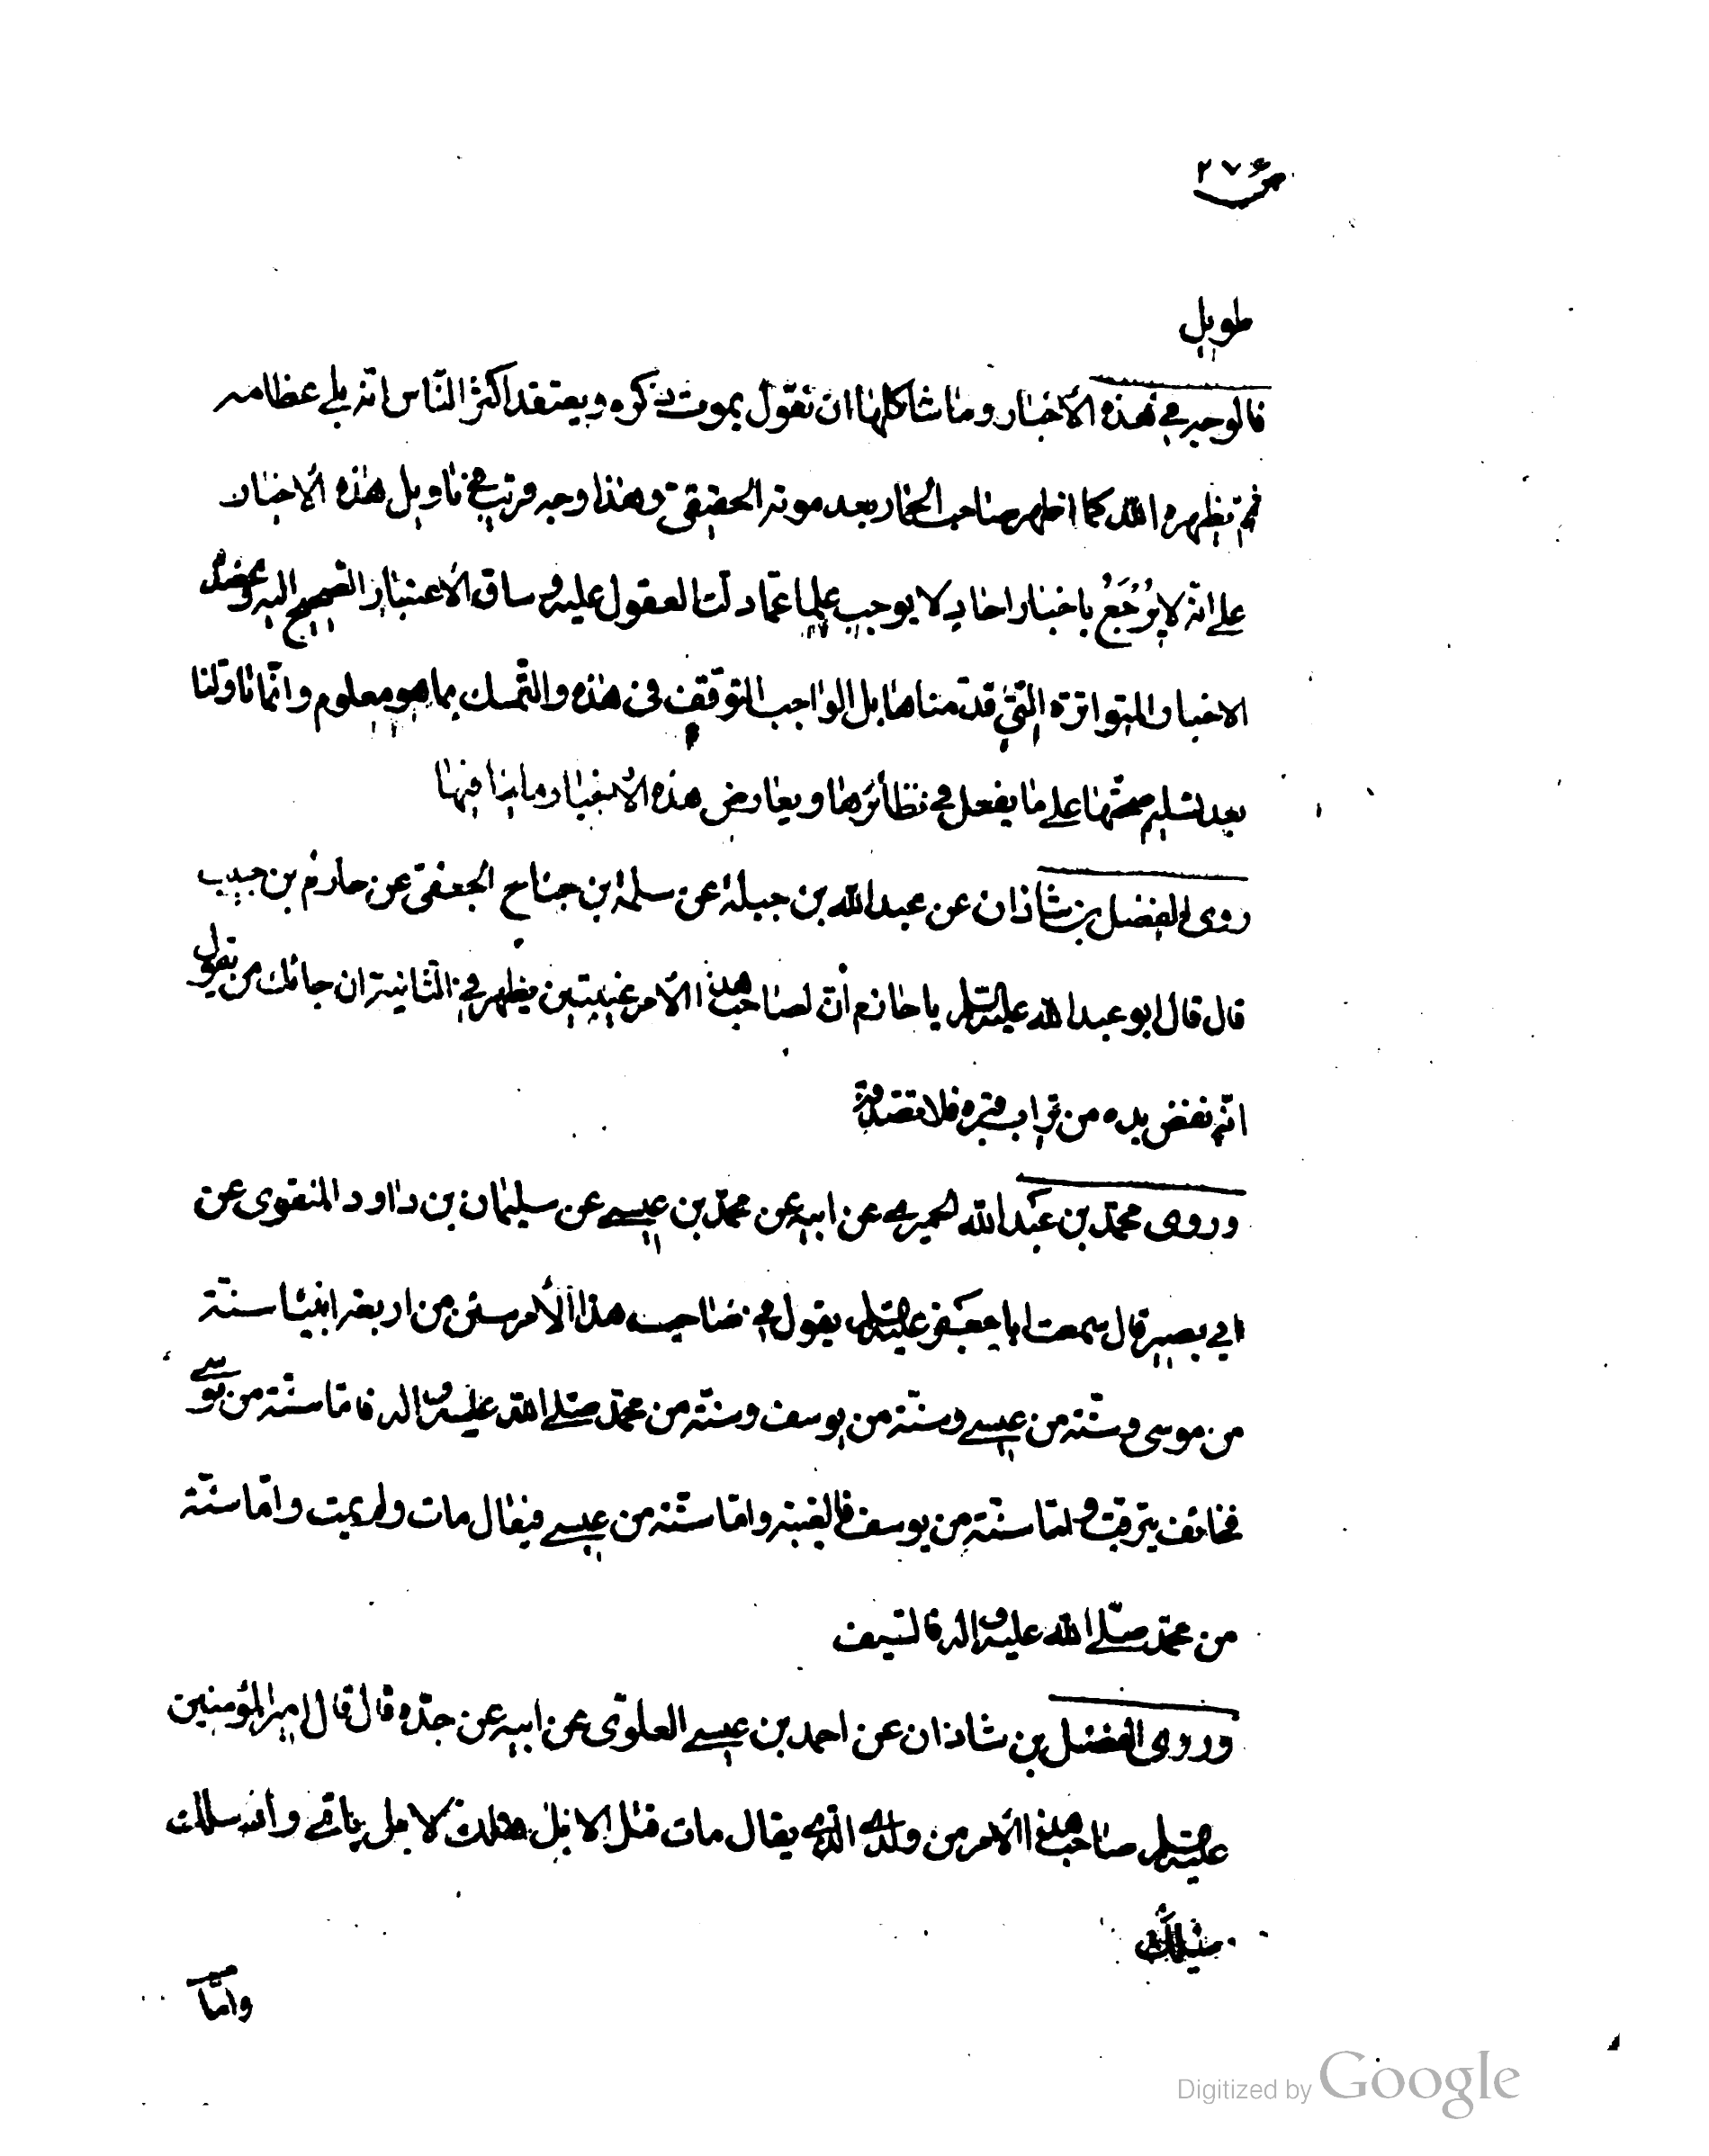 ٢٧۶
طويل
فالوجه في هذه الأخبار وما شاكلها ان نقول بموت ذكره ويعتقد اكثر النّاس انّه بلي عظامه
ثمّ يظهره اللّه كما اظهر صاحب الحمار بعد موته الحقيقيّ وهذا وجه قريب في تاويل هذه الاخبار
على انّه لا يُرْجَعُ باخبار احاد لا يوجب علما عمّا دلّت العقول عليه و ساق الاعتبار الصّحيح اليه وعضده
الاخبار المتواترة الّتي قدّمناها بل الواجب التّوقّف في هذه والتّمسك بما هو معلوم وانّما تاوّلنا
بعد تسليم صحّتها على ما يفعل في نظائرها ويعارض هذه الأخبار ما ينافيها
روى الفضل بن شاذان عن عبد اللّه بن جبلة عن سلمة بن جناح الجعفيّ عن حازم بن حبيب
قال قال ابو عبد اللّه عليه السّلم يا حازم أنّ لصاحب هذا الأمر غيبتين يظهر في الثّانية ان جائك من يقول
انّه نفض يده من تراب قبره فلا تصدّقه
وروى محمّد بن عبد اللّه الحميري عن ابيه عن محمّد بن عيسى عن سليمان بن داود المنقرى عن
ابي بصير قال سمعت ابا جعفر عليه السّلم يقول في صاحب هذا الأمر سنن من اربعة انبيا سنّة
من موسى وسنّة من عيسى وسنّة من يوسف وسنّة من محمّد صلّى اللّه عليه واله فامّا سنّة من موسى
فخائف يترقّب و امّا سنّة من يوسف فالغيبة وامّا سنّة من عيسى فيقال مات ولم يمت وامّا سنّة
من محمّد صلّى اللّه عليه واله فالسّيف
وروى الفضل بن شاذان عن احمد بن عيسى العلوّى عن ابيه عن جدّه قال قال امير المؤمنين
عليه السّلم صاحب هذا الأمر من ولدي الّذي يقال مات قتل لا بل هلك لا بل باي واد سلك
واما
Digitized by Google